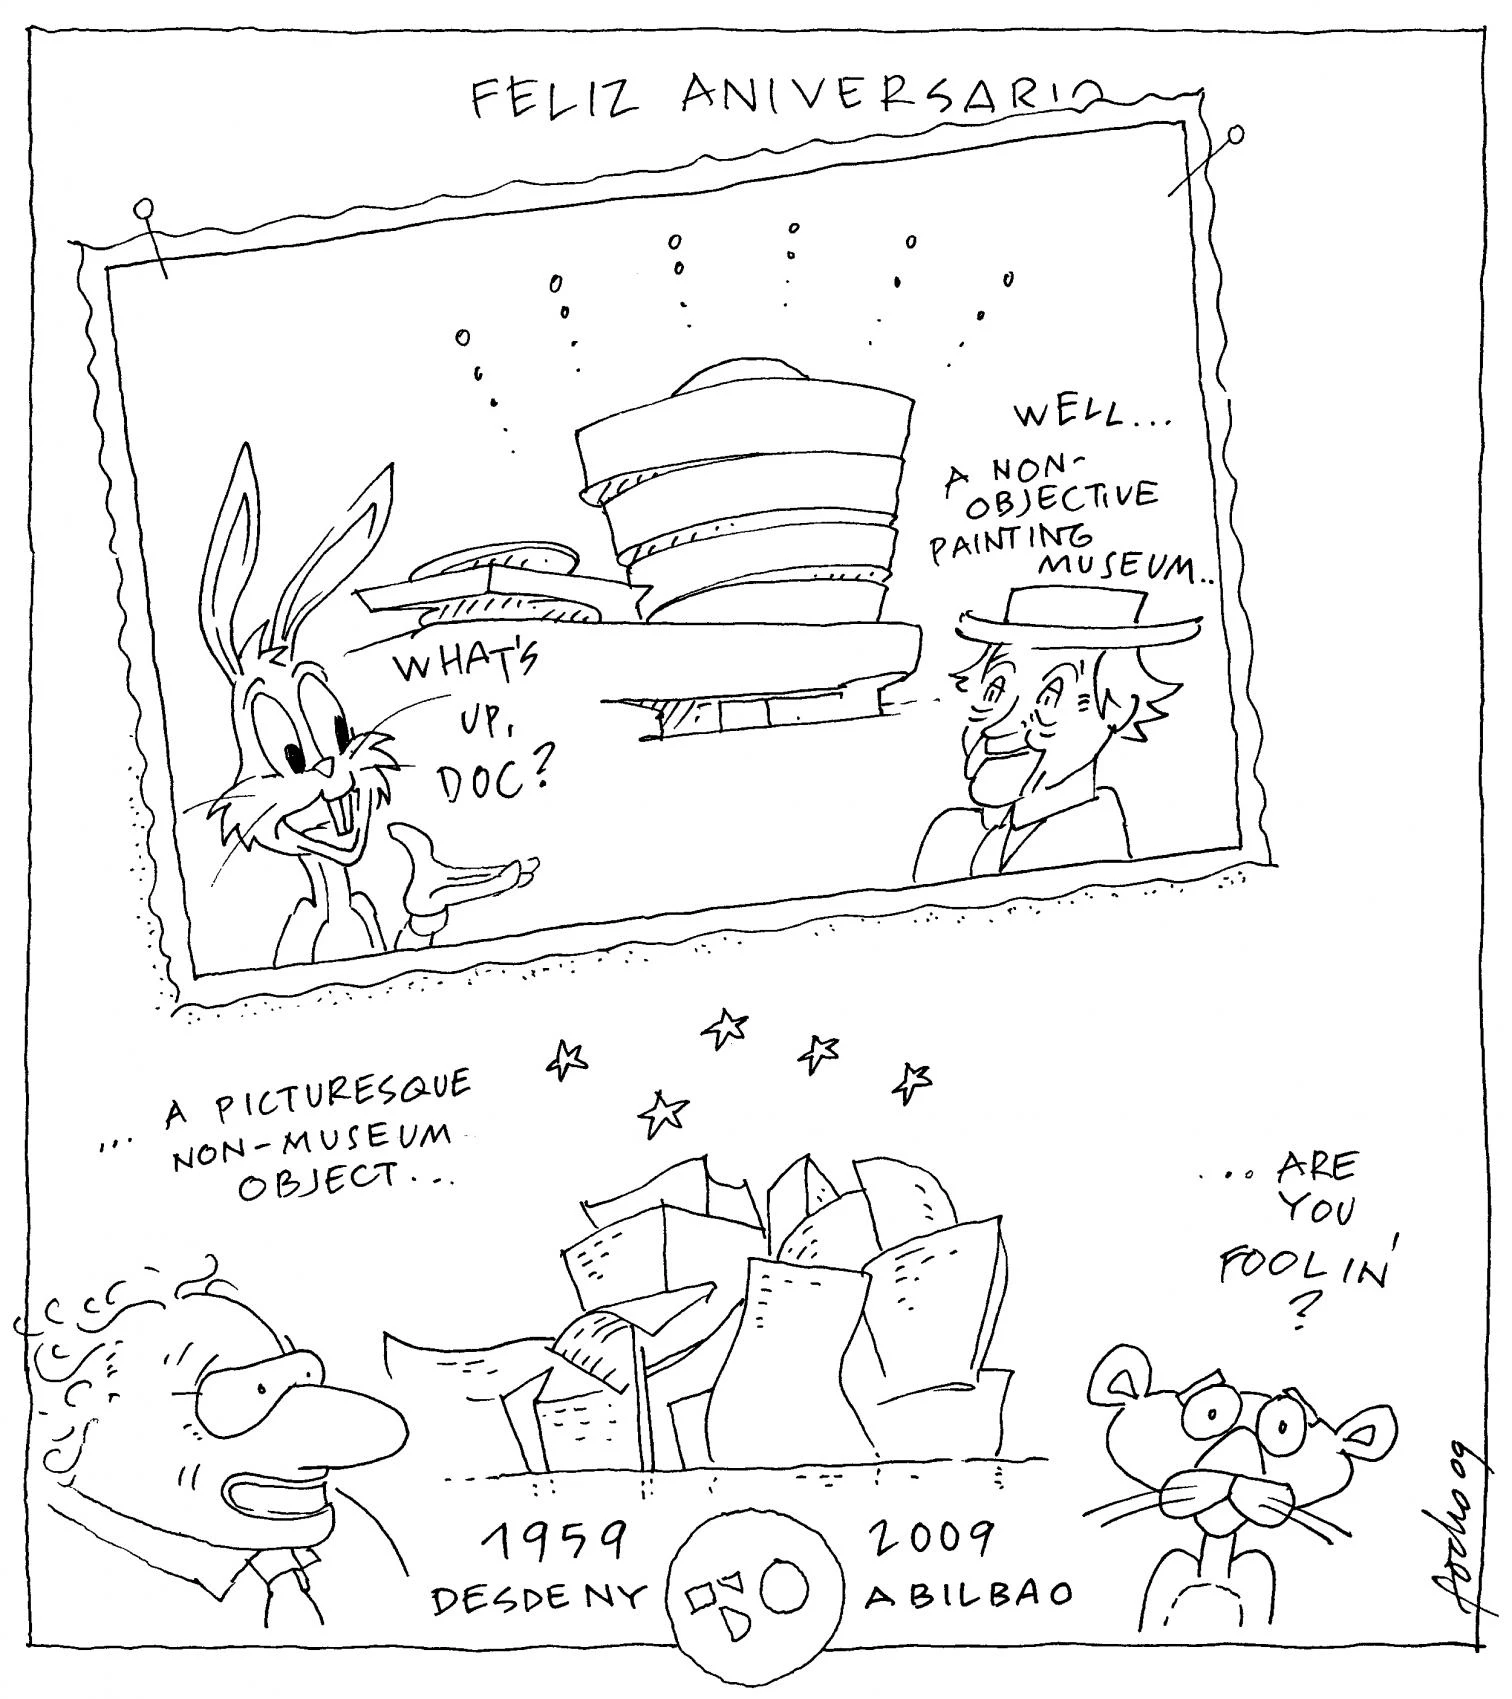 FELIZ ANIVERSARIO
WELL...
A NON-
OBJECTIVE
PAINTING
MUSEUM..
WHAT'S
UP,
DOC?
... A PICTURESQUE
NON-MUSEUM
OBJECT...
... ARE
YOU
FOOLIN'
?
1959
DESDE NY
2009
A BILBAO
focho 09